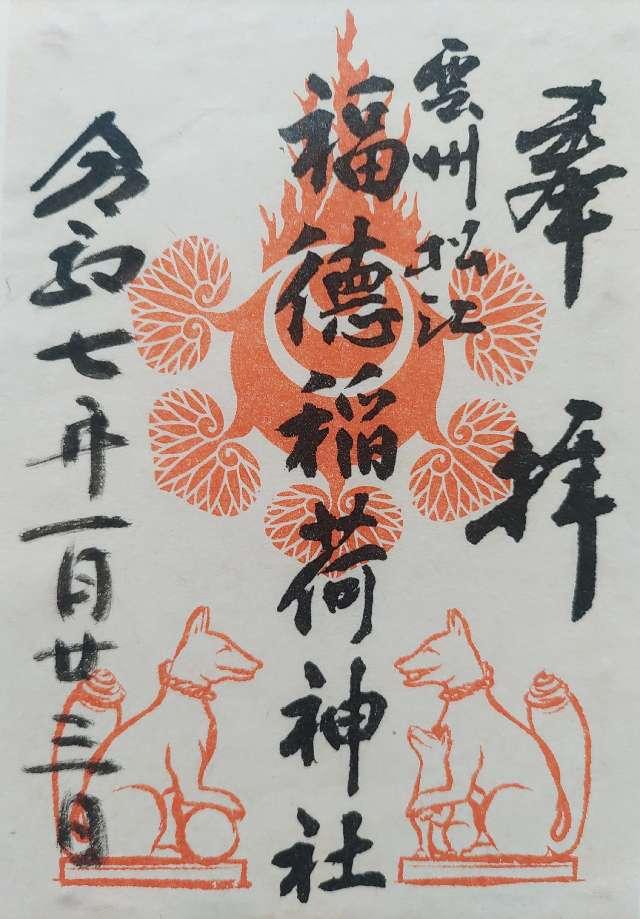 奉拝
雲州松江
福徳稲荷神社
令和七年一月廿三日